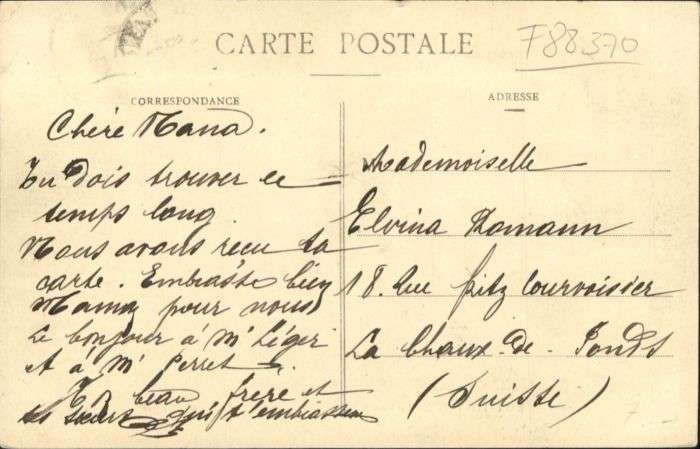 CARTE POSTALE
F88370
CORRESPONDANCE
Chère Nana.
Tu dois trouver le
temps long.
Nous avons reçu ta
carte. Embrasse bien
Mama pour nous
Le bonjour à Mr Léger
et à Mr Perret.
Ton beau frere et
ta soeur qui t'embrassent
ADRESSE
Mademoiselle
Elvina Romann
18. Rue fritz Courvoisier
La Chaux-de-Fonds
(Suisse)